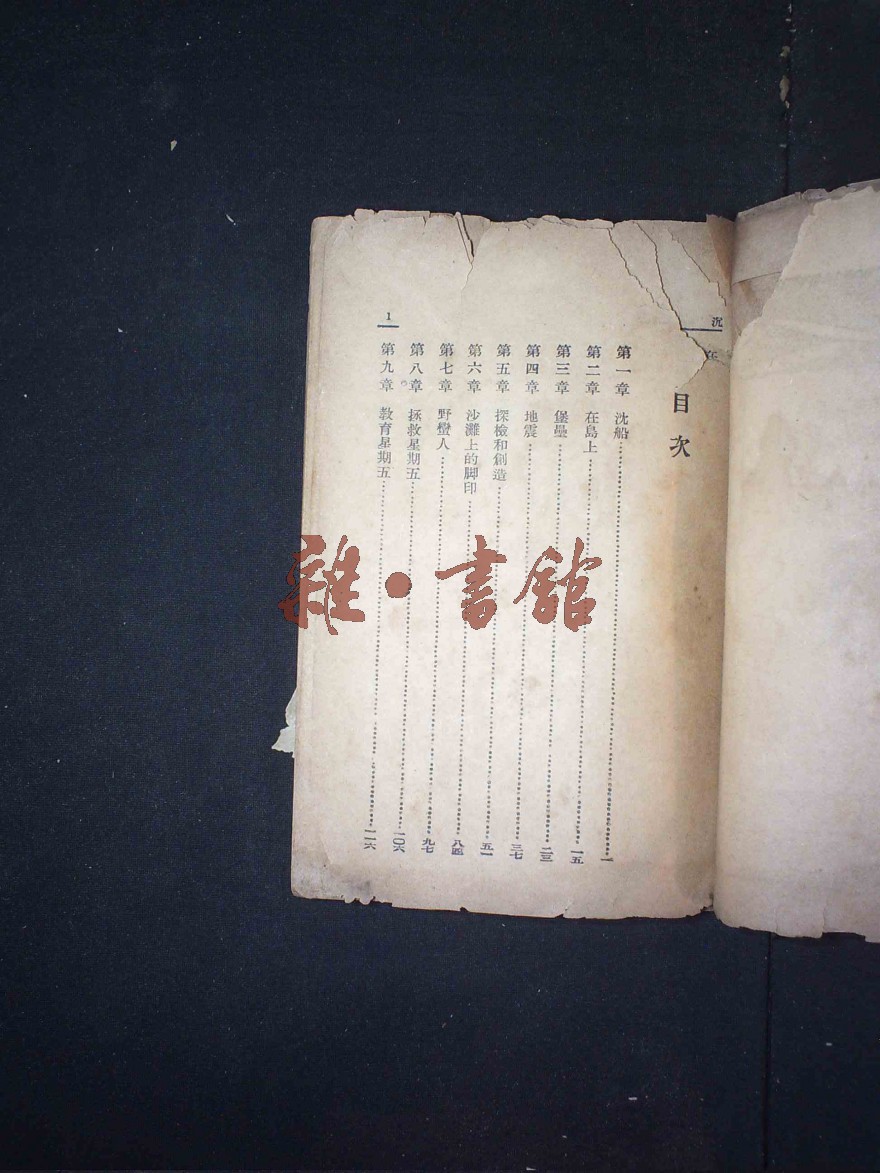 沉
在
目次
第一章 沈船…………一
第二章 在島上…………一五
第三章 堡壘…………二三
第四章 地震…………三七
第五章 探檢和創造…………五一
第六章 沙灘上的脚印…………八四
第七章 野蠻人…………九七
第八章 拯救星期五…………一〇六
第九章 教育星期五…………一一六
1
雜·書館